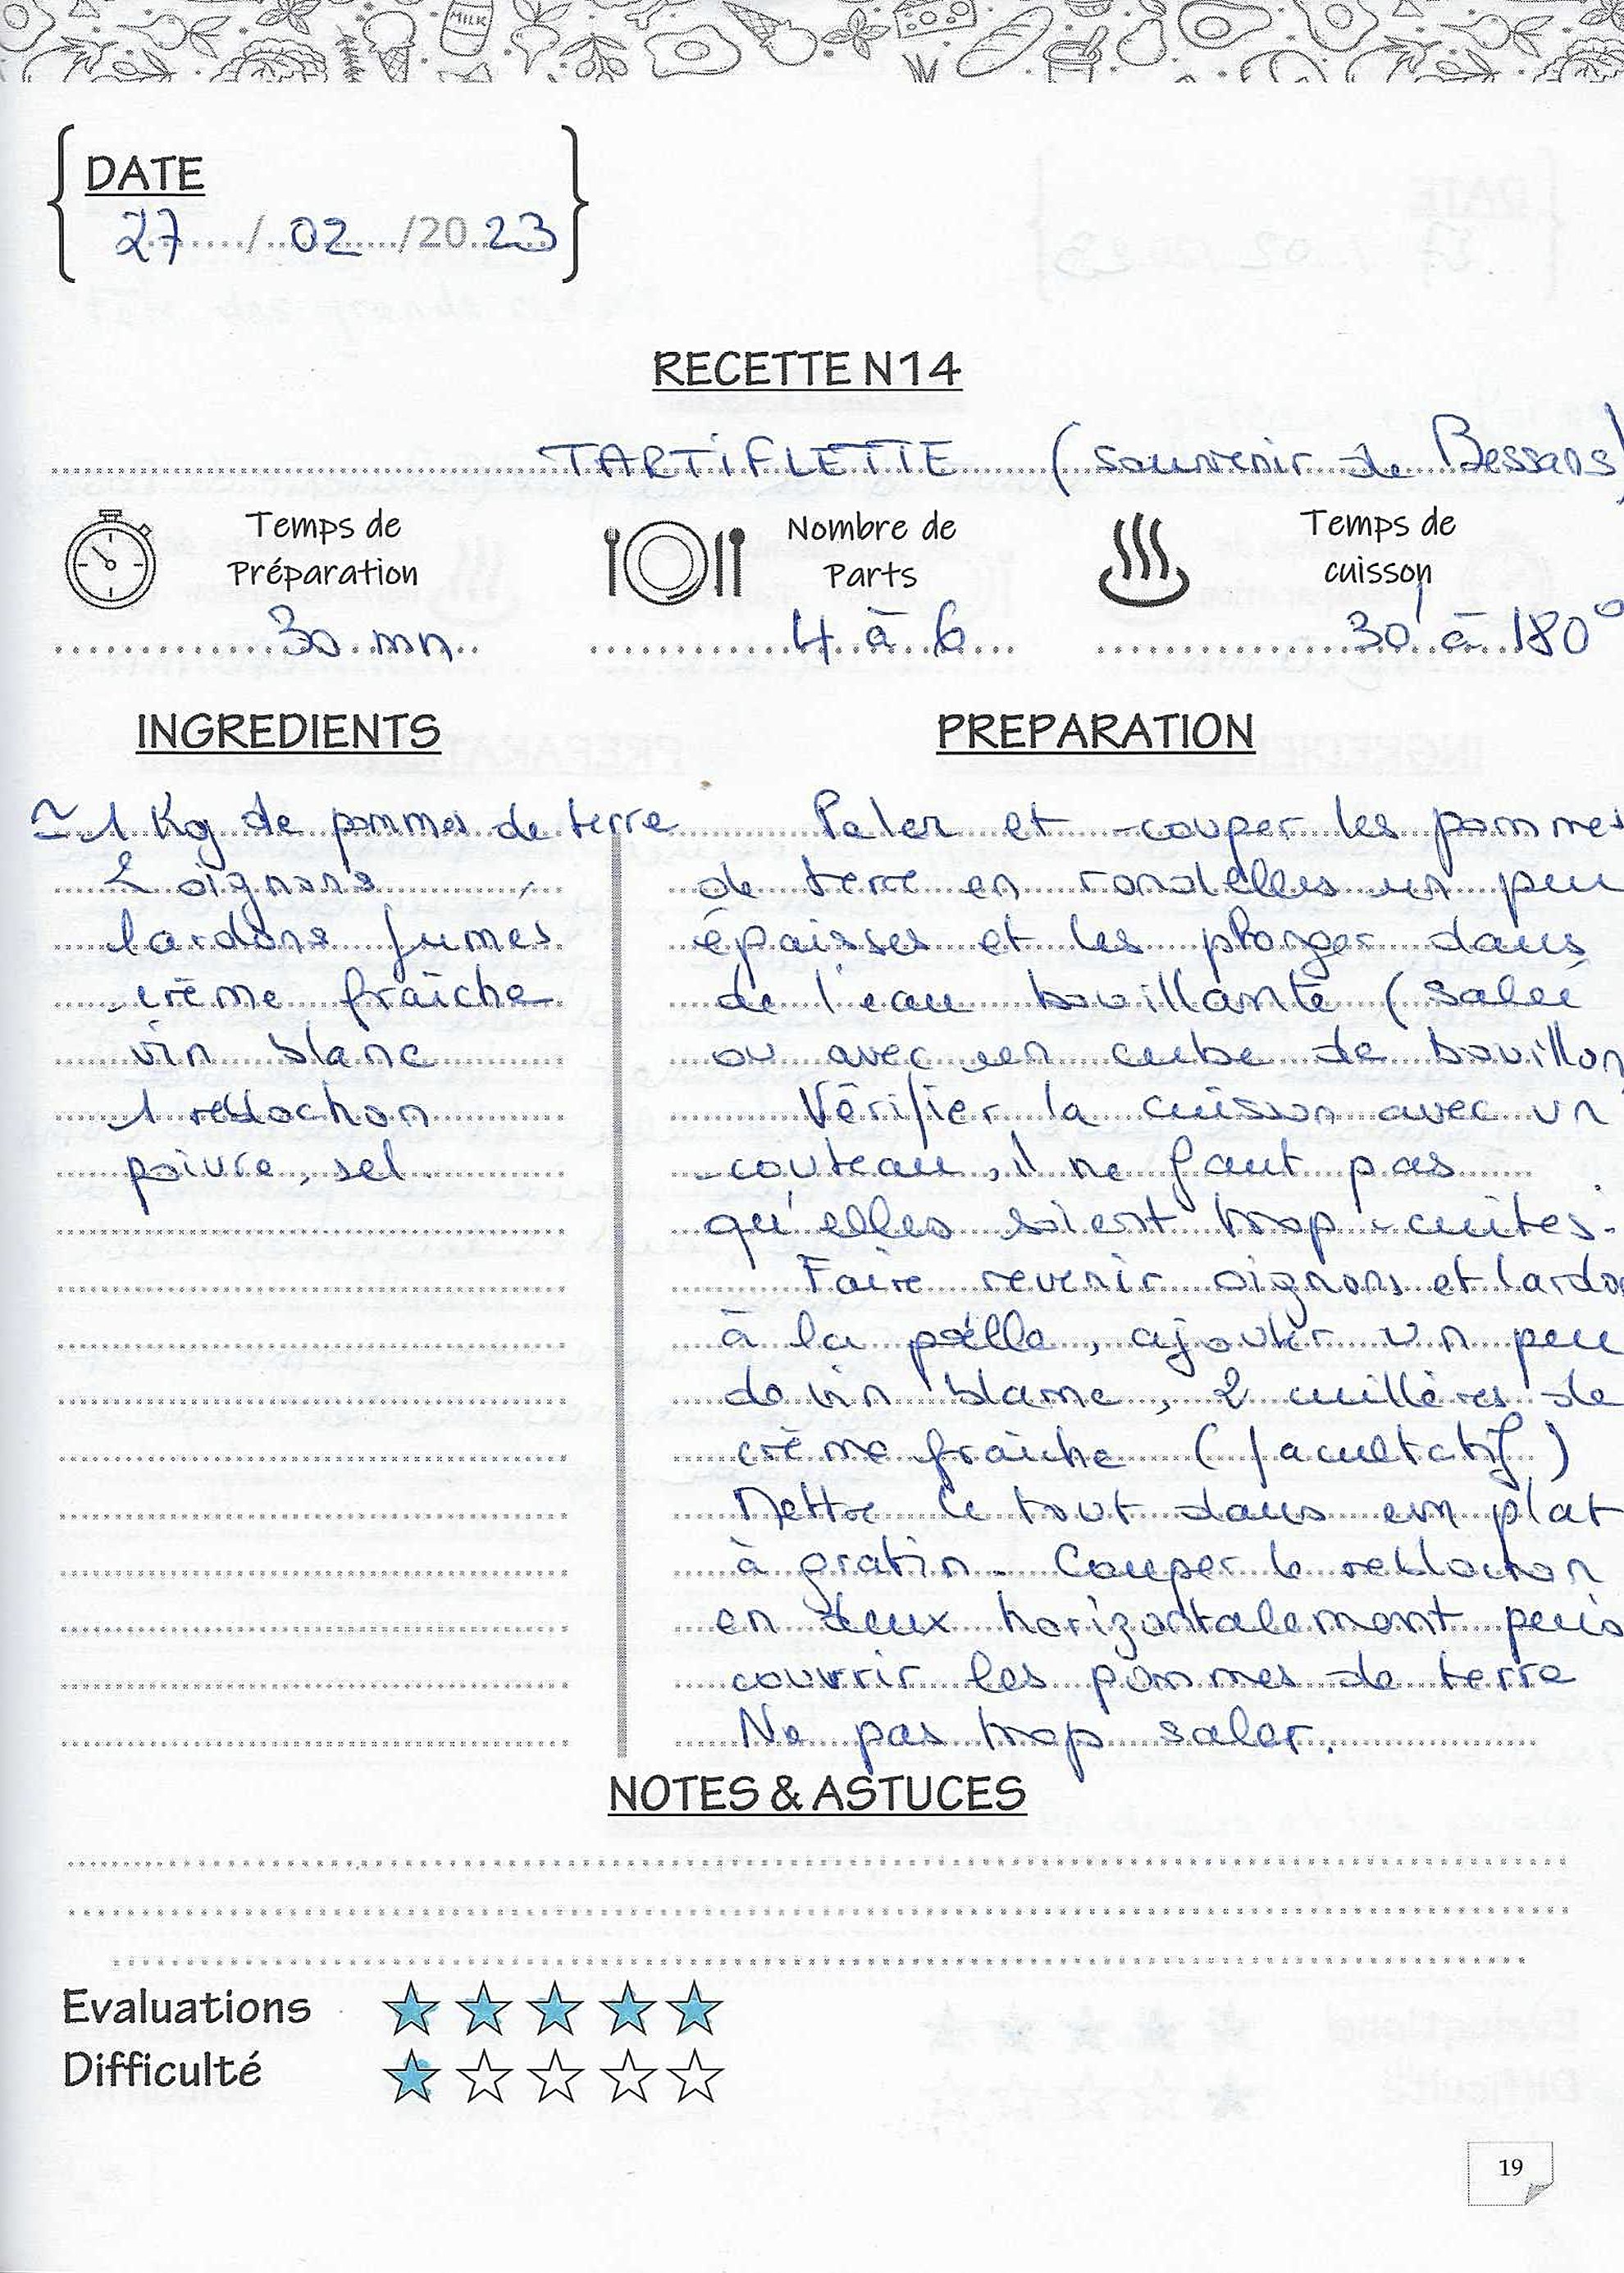 MILK
DATE
27 / 02 /20 23
RECETTE N14
TARTIFLETTE (souvenir de Bessans)
Temps de Préparation
Nombre de Parts
Temps de cuisson
30 mn
4 à 6
30' à 180°
INGREDIENTS
≃ 1 Kg de pommes de terre
2 oignons
lardons fumés
crème fraîche
vin blanc
1 reblochon
poivre, sel.
PREPARATION
Peler et couper les pommes
de terre en rondelles un peu
épaisses et les plonger dans
de l'eau bouillante (salée
ou avec un cube de bouillon
Vérifier la cuisson avec un
couteau, il ne faut pas
qu'elles soient trop cuites.
Faire revenir oignons et lardo
à la poêlle, ajouter un peu
de vin blanc, 2 cuillères de
crème fraîche (facultatif)
Mettre le tout dans un plat
à gratin. Couper le reblochon
en deux horizontalement puis
couvrir les pommes de terre
Ne pas trop saler.
NOTES & ASTUCES
Evaluations
Difficulté
19